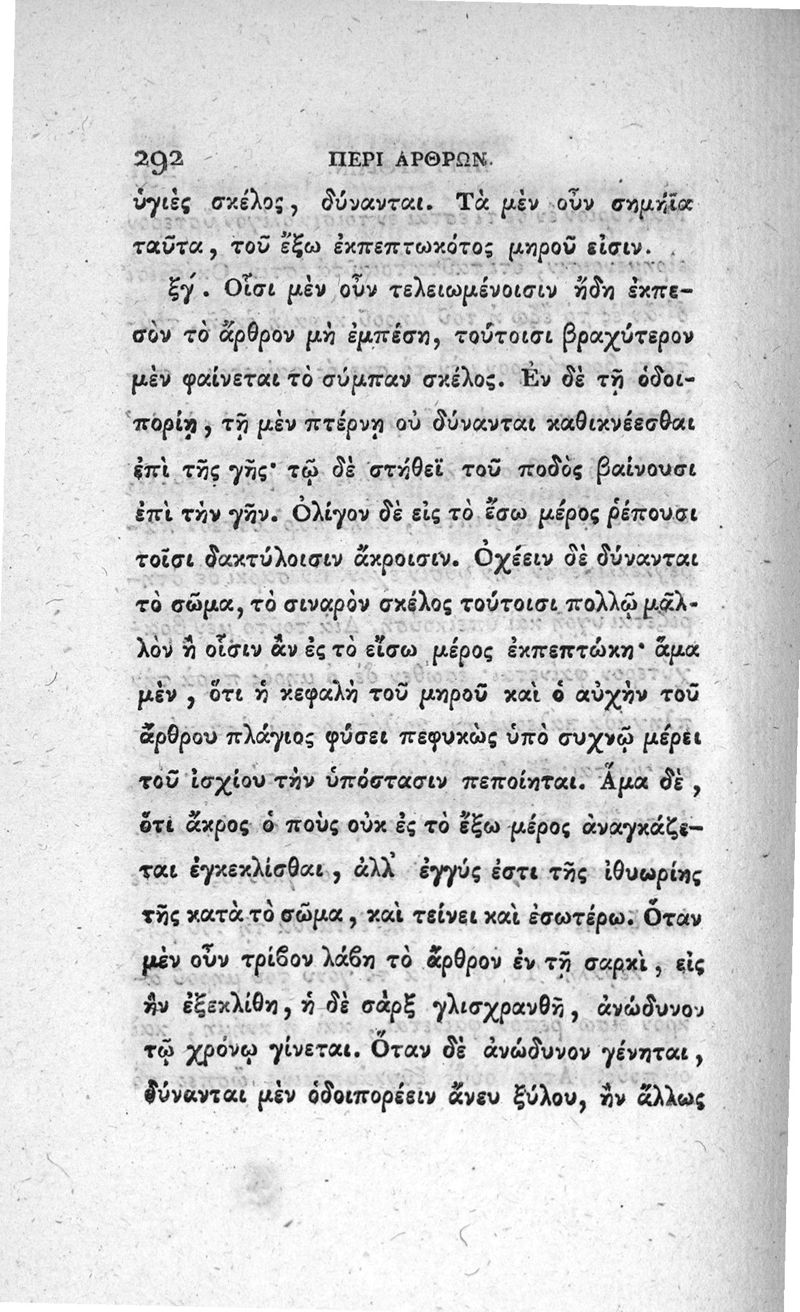 292 ΠΕΡΙ ΑΡΘΡΩΝ.
ὑγιὲς σκέλος, δύνανται. Τὰ μὲν οὖν σημήϊα
ταῦτα, τοῦ ἔξω ἐκπεπτωκότος μηροῦ εἰσιν.
ξγ΄. Οἷσι μὲν οὖν τελειωμένοισιν ἤδη ἐκπε-
σὸν τὸ ἄρθρον μὴ ἐμπέσῃ, τούτοισι βραχύτερον
μὲν φαίνεται τὸ σύμπαν σκέλος. Ἐν δὲ τῇ ὁδοι-
πορίῃ, τῇ μὲν πτέρνῃ οὐ δύνανται καθικνέεσθαι
ἐπὶ τῆς γῆς· τῷ δὲ στήθεϊ τοῦ ποδὸς βαίνουσι
ἐπὶ τὴν γῆν. Ὀλίγον δὲ εἰς τὸ ἔσω μέρος ῥέπουσι
τοῖσι δακτύλοισιν ἄκροισιν. Ὀχέειν δὲ δύνανται
τὸ σῶμα, τὸ σιναρὸν σκέλος τούτοισι πολλῷ μᾶλ-
λὸν ἢ οἷσιν ἂν ἐς τὸ εἴσω μέρος ἐκπεπτώκη· ἅμα
μὲν, ὅτι ἡ κεφαλὴ τοῦ μηροῦ καὶ ὁ αὐχὴν τοῦ
ἄρθρου πλάγιος φύσει πεφυκὼς ὑπὸ συχνῷ μέρει
τοῦ ἰσχίου τὴν ὑπόστασιν πεποίηται. Ἅμα δὲ,
ὅτι ἄκρος ὁ ποὺς οὐκ ἐς τὸ ἔξω μέρος ἀναγκάζε-
ται ἐγκεκλίσθαι, ἀλλ' ἐγγύς ἐστι τῆς ἰθυωρίης
τῆς κατὰ τὸ σῶμα, καὶ τείνει καὶ ἐσωτέρω. Ὅταν
μὲν οὖν τρίβον λάβῃ τὸ ἄρθρον ἐν τῇ σαρκὶ, εἰς
ἣν ἐξεκλίθη, ἡ δὲ σὰρξ γλισχρανθῇ, ἀνώδυνον
τῷ χρόνῳ γίνεται. Ὅταν δὲ ἀνώδυνον γένηται,
δύνανται μὲν ὁδοιπορέειν ἄνευ ξύλου, ἢν ἄλλως